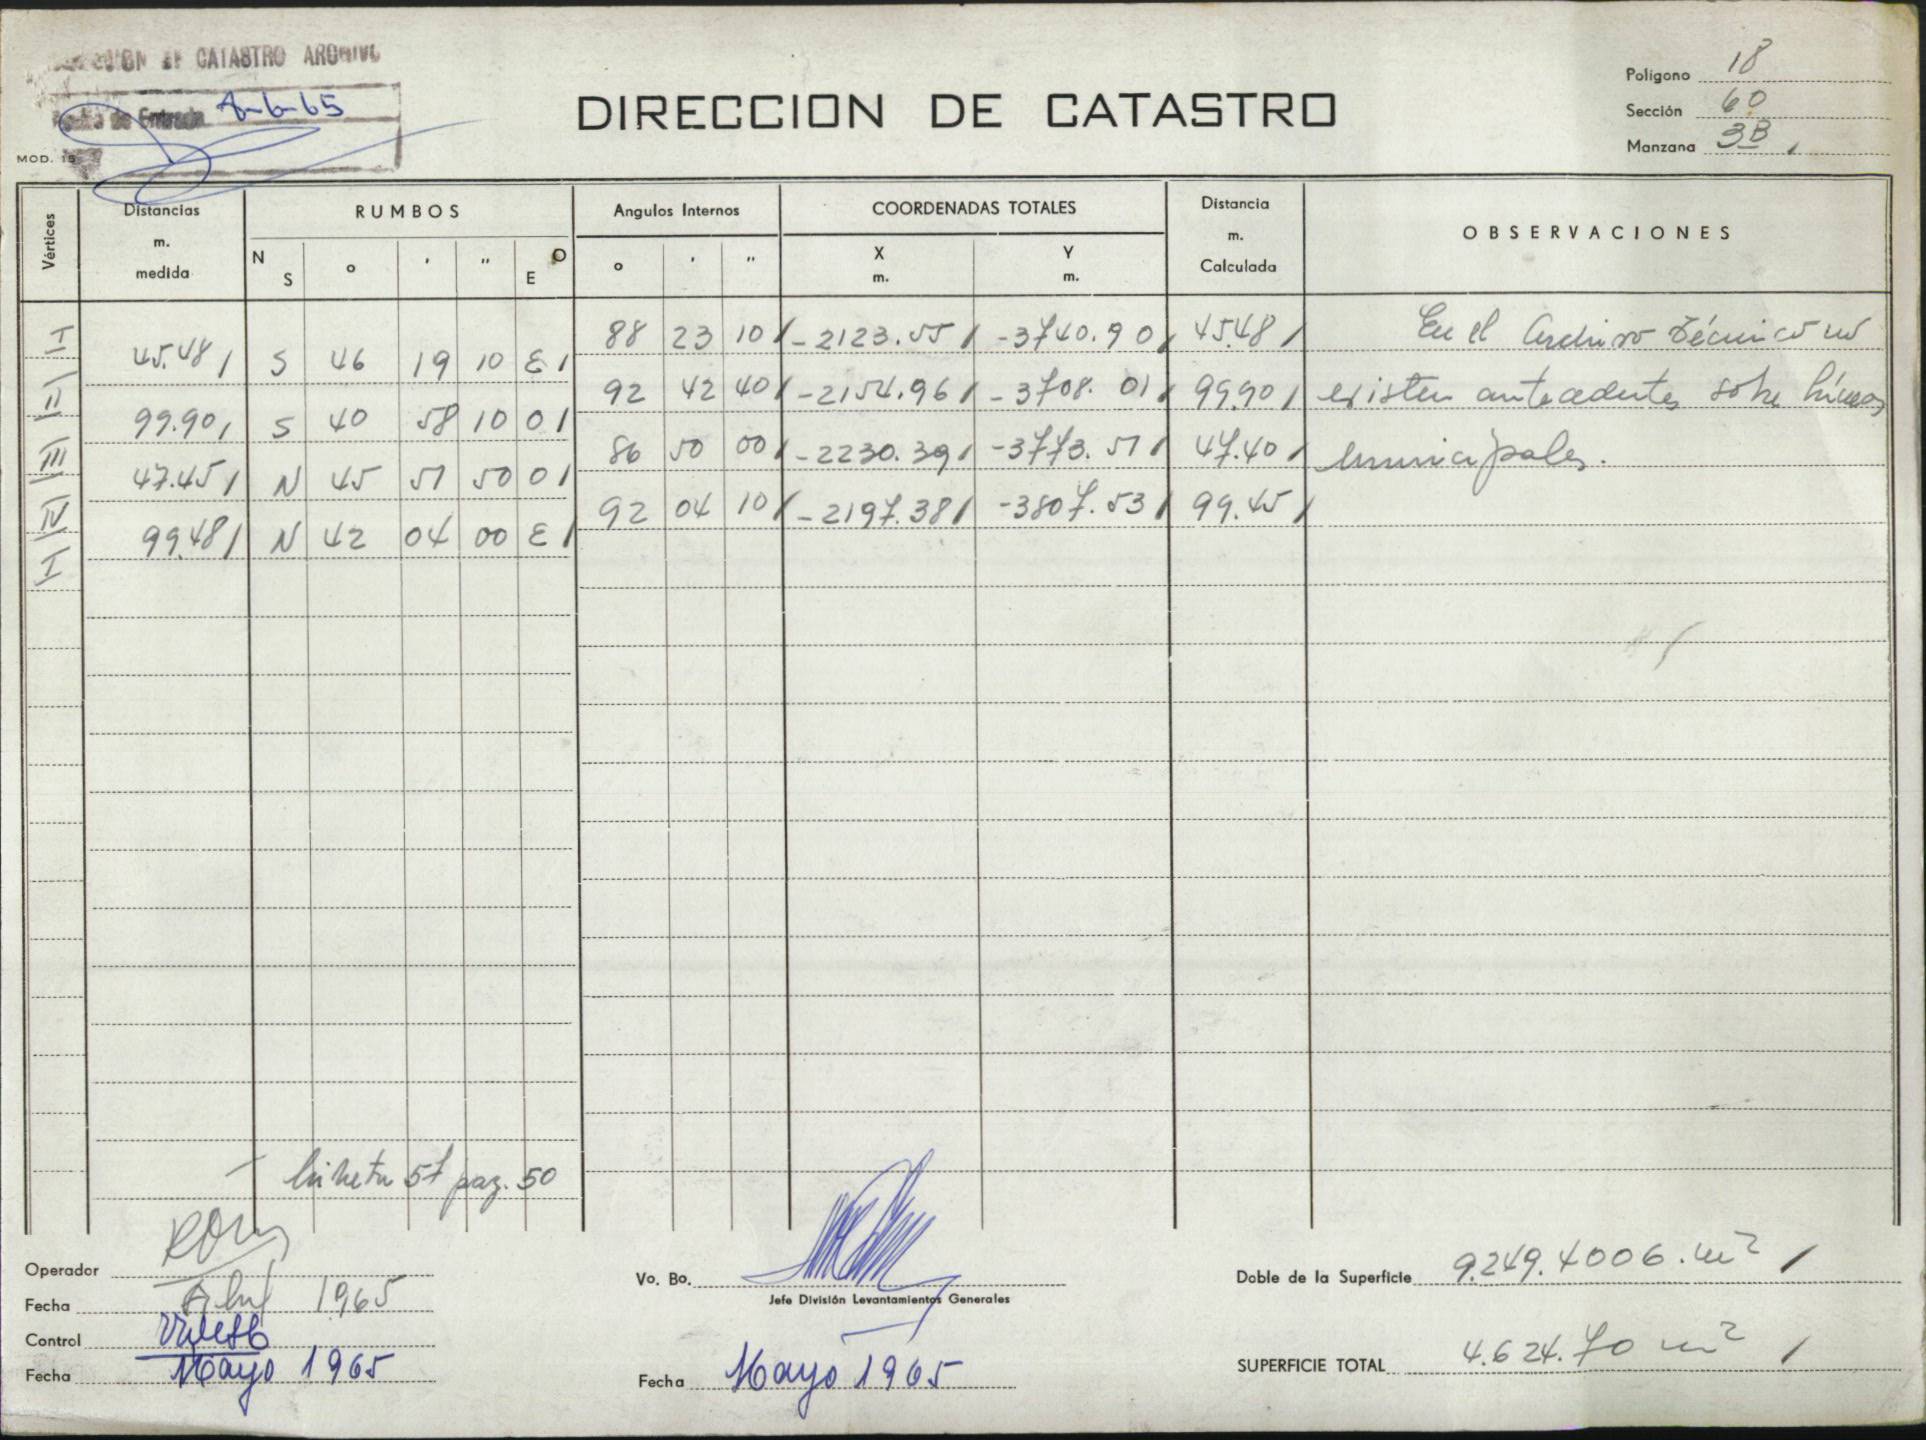 DIRECCION DE CATASTRO ARCHIVO
Fecha de Entrada 8-6-65
MOD. 15
DIRECCION DE CATASTRO
Polígono 18
Sección 60
Manzana 3B
Vértices
Distancias m. medida
RUMBOS
N S ° ' " E O
Angulos Internos
° ' "
COORDENADAS TOTALES
X m. Y m.
Distancia m. Calculada
OBSERVACIONES
I 88 23 10 -2123.55 -3740.90 45.48 En el Archivo Técnico no
45.48 S 46 19 10 E
II 92 42 40 -2154.96 -3708.01 99.90 existen antecedentes sobre líneas
99.90 S 40 58 10 O
III 86 50 00 -2230.39 -3773.51 47.40 municipales.
47.45 N 45 51 50 O
IV 92 04 10 -2197.38 -3807.53 99.45
99.48 N 42 04 00 E
I
libreta 57 pag. 50
Operador
Fecha Abril 1965
Control
Fecha Mayo 1965
Vo. Bo.
Jefe División Levantamientos Generales
Fecha Mayo 1965
Doble de la Superficie 9.249.4006 m²
SUPERFICIE TOTAL 4.624.70 m²